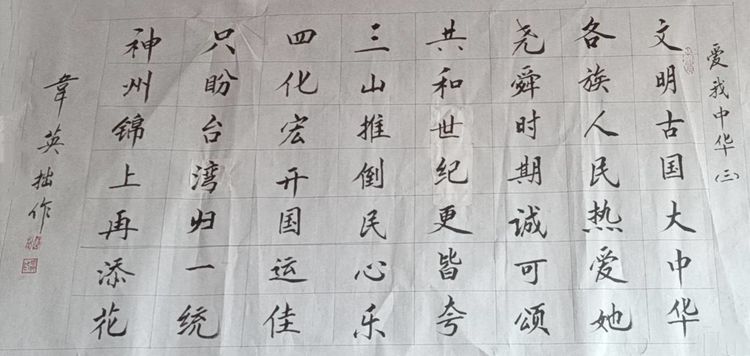 爱我中华(三)
文明古国大中华
各族人民热爱她
尧舜时期诚可颂
共和世纪更皆夸
三山推倒民心乐
四化宏开国运佳
只盼台湾归一统
神州锦上再添花
韦英拙作